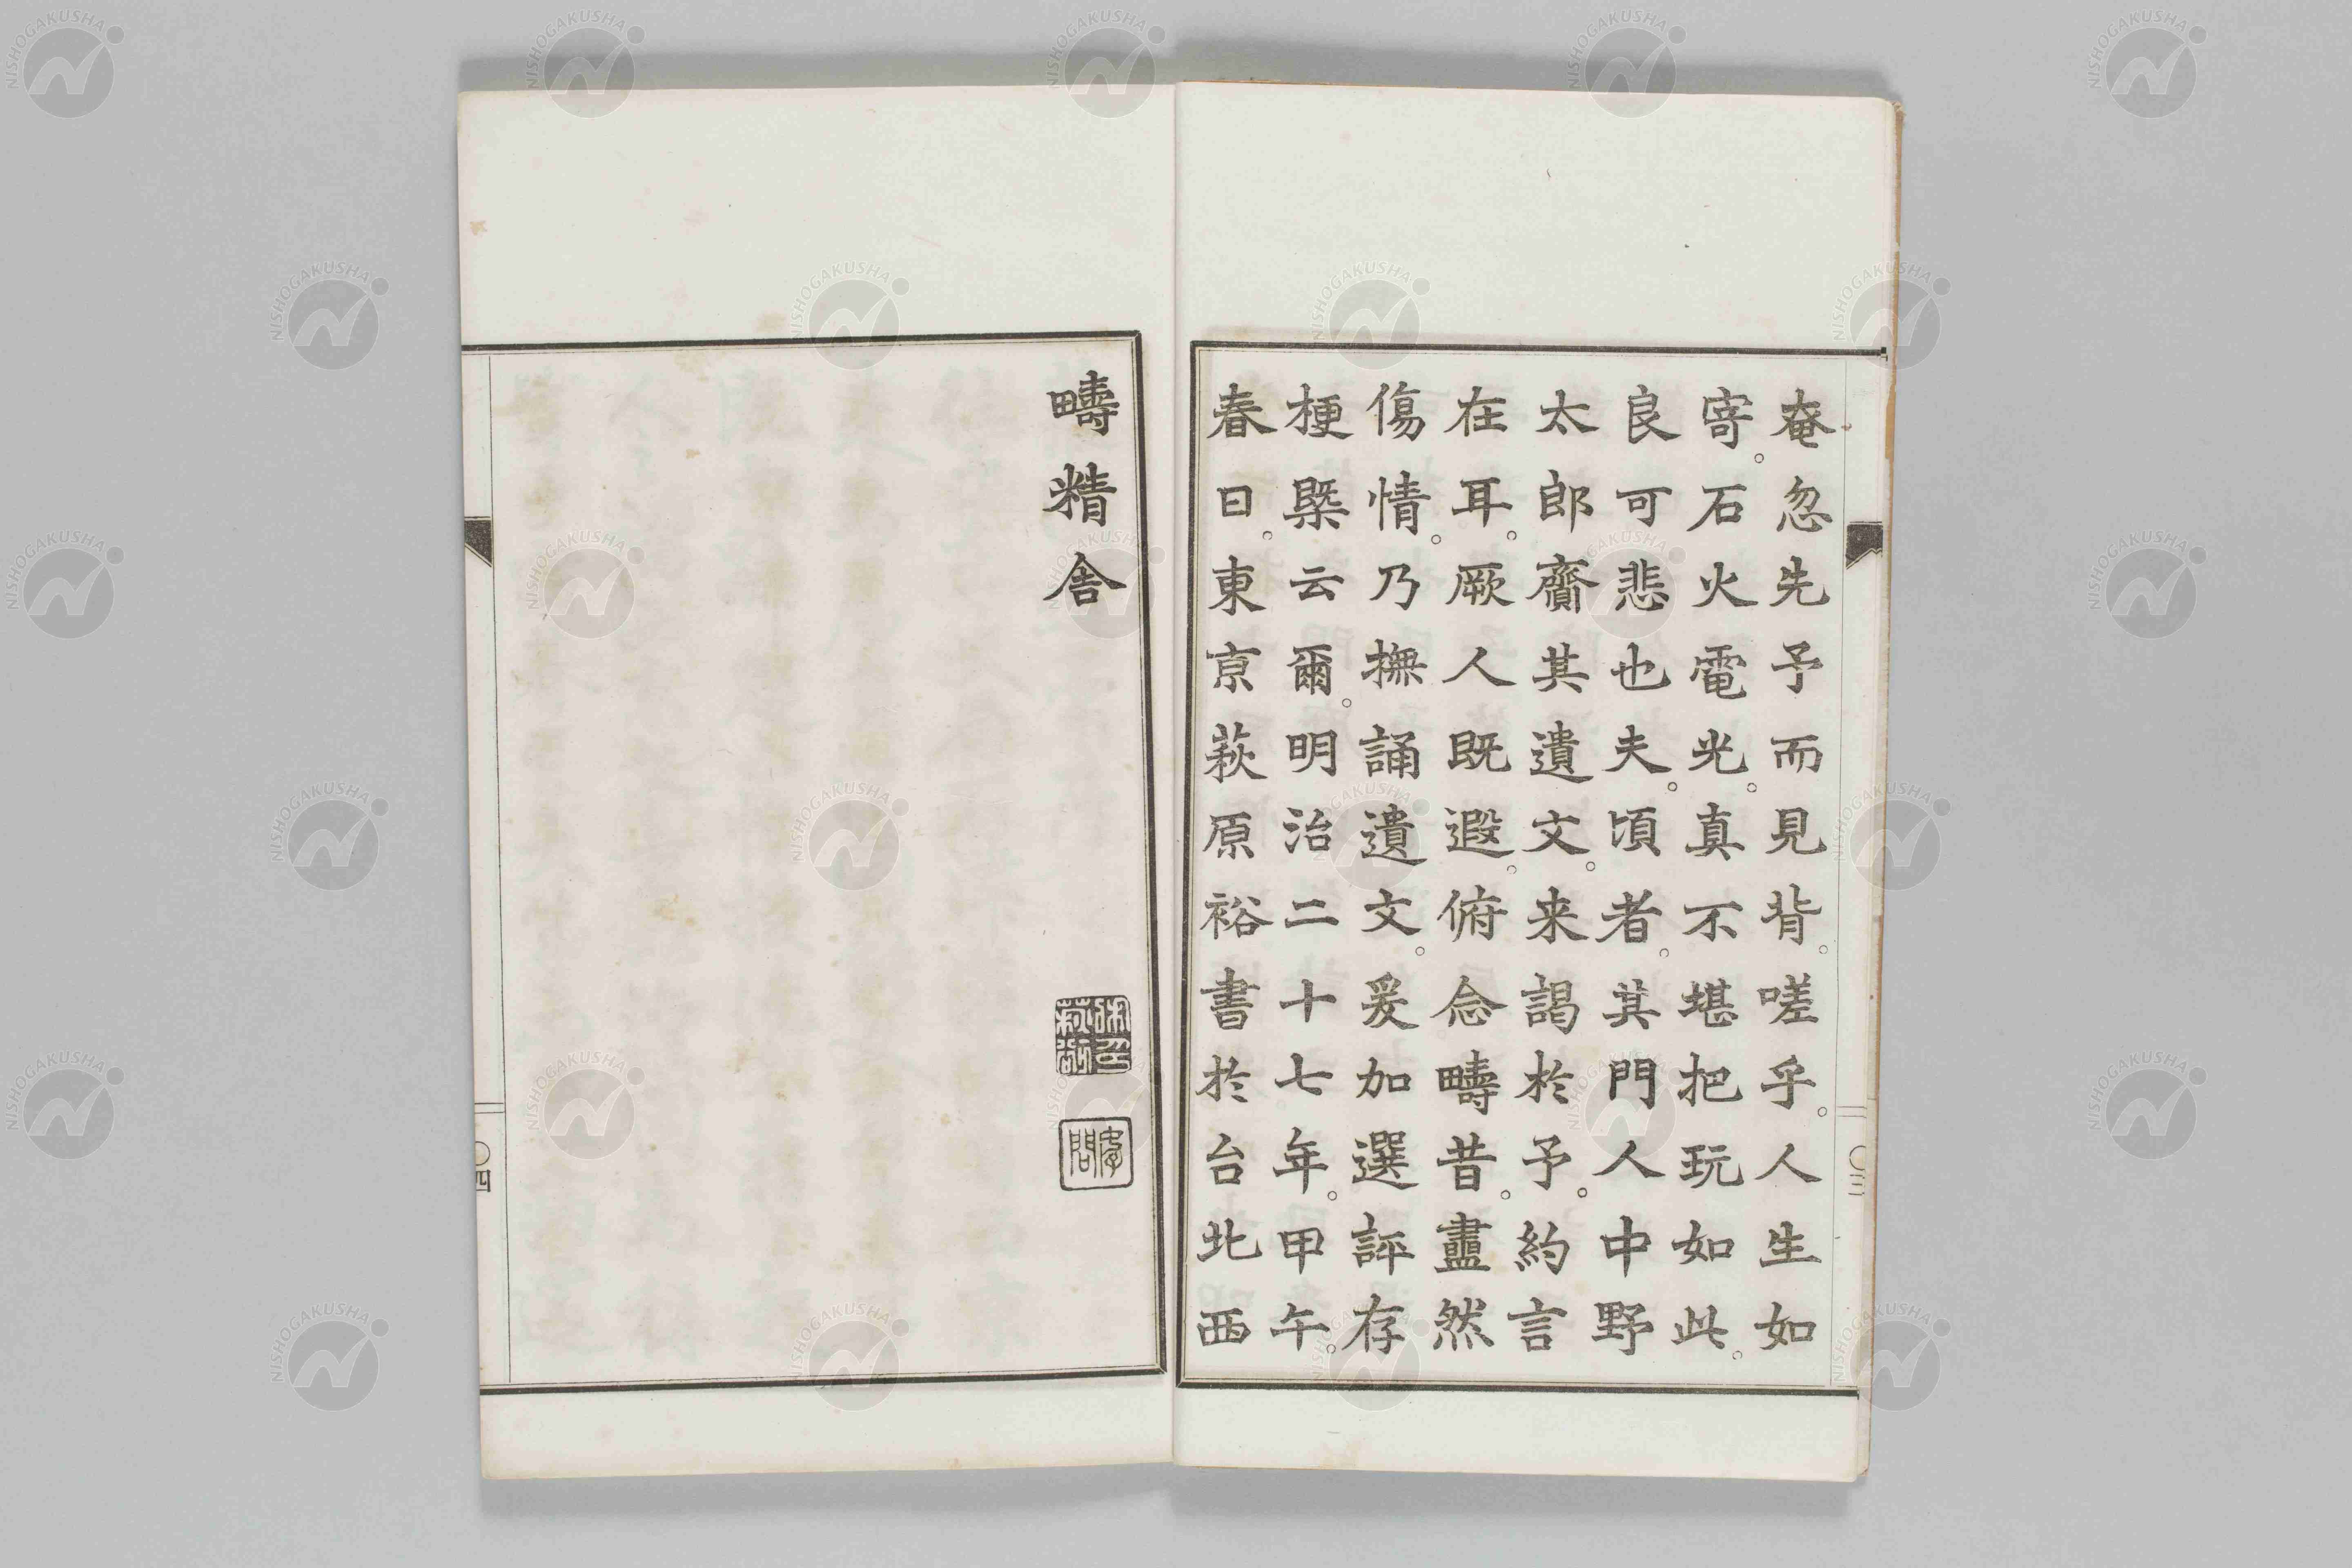 奄忽先予而見背。嗟乎。人生如
寄。石火電光。真不堪把玩如此。
良可悲也夫。頃者。其門人中野
太郎齎其遺文。来謁於予。約言
在耳。厥人既遐。俯念疇昔。衋然
傷情。乃撫誦遺文。爰加選評存
梗槩云爾。明治二十七年。甲午。
春日。東京萩原裕書於台北西
疇精舍
〇三
〇四
NISHOGAKUSHA